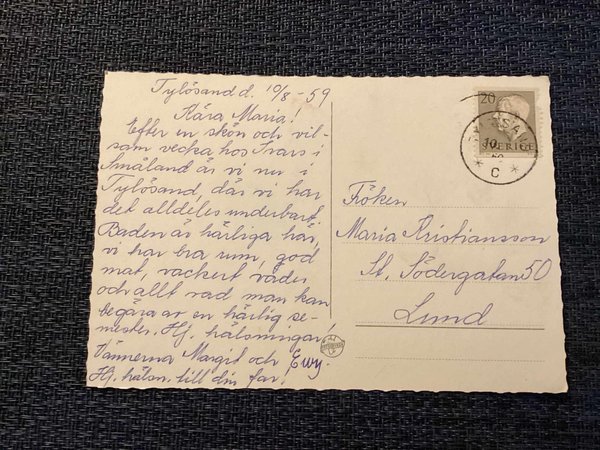 Tylösand d. 10/8 - 59
Kära Maria!
Efter en skön och vil-
sam vecka hos Ivars i
Småland är vi nu i
Tylösand, där vi har
det alldeles underbart.
Baden är härliga här,
vi har bra rum, god
mat, vackert väder
och allt vad man kan
begära av en härlig se-
mester. Hj. hälsningar!
Vännerna Margit och Ewy.
Hj. hälsn. till din far!
20
SVERIGE
C
Fröken
Maria Kristiansson
St. Södergatan 50
Lund